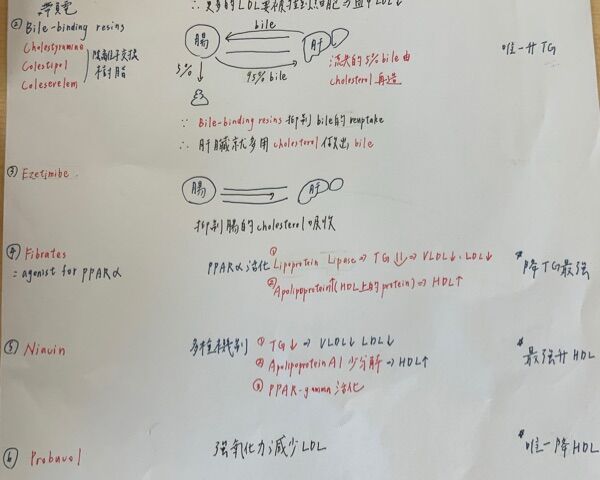 ∴ 更多的LDL要被抓到肝臟 ∴ 血中LDL↓
② Bile-binding resins
Cholestyramine
Colestipol
Colesevelem
陰離子交換
樹脂
腸
bile
肝
5%
95% bile
流失的5% bile由
cholesterol再造
唯一升TG
∵ Bile-binding resins 抑制 bile的reuptake
∴ 肝臟就多用cholesterol做出bile
③ Ezetimibe
腸
肝
抑制腸的cholesterol吸收
④ Fibrates
: agonist for PPARα
PPARα活化
① Lipoprotein Lipase ⇒ TG ⇓ ⇒ VLDL↓, LDL↓
② Apolipoprotein↑(HDL上的protein) ⇒ HDL↑
*降TG最強
⑤ Niacin
多種機制
① TG↓ ⇒ VLDL↓ LDL↓
② Apolipoprotein A1 少分解 ⇒ HDL↑
③ PPAR-gamma 活化
*最強升HDL
⑥ Probucol
強氧化力減少LDL
*唯一降HDL